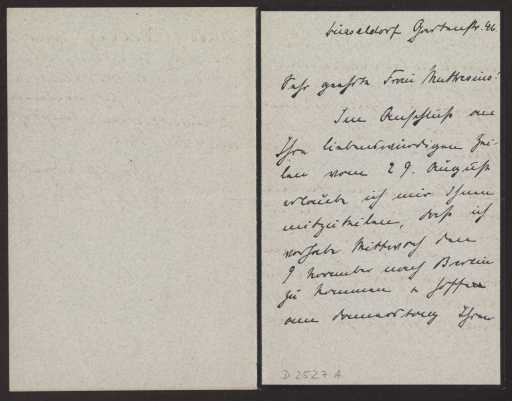 Düsseldorf Gartenstr. 46.
Sehr geehrte Frau Muthesius!
Im Anschluß an
Ihre liebenswürdigen Zei-
len vom 29. August
erlaube ich mir Ihnen
mitzuteilen, daß ich
vorhabe Mittwoch den
9 November nach Berlin
zu kommen u hoffe
am Donnerstag Ihrer
D 2527 A